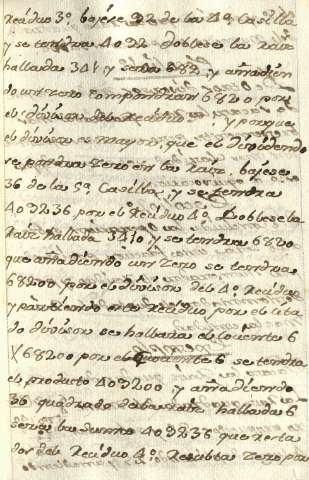 residuo 3º. bajese 32 de la 4ª. Casilla
y se tendra 4032. doblese la raiz
hallada 341 y será 682, y añadien
do un zero compondran 6820 por
el divisor del residuo y porque
el divisor es mayor, que el dividendo
se pondra zero en la raiz. bajese
36 de la 5ª. Casilla, y se tendra
403236 por el residuo 4º. Doblese la
raiz hallada 3410 y se tendra 6820
que añadiendo un zero se tendra
68200 por el divisor del 4º. residuo
y partiendo este residuo por el cita
do divisor se hallara el cociente 6
X 68200 por el 6 se tendra
el producto 409200 y añadiendo
36 quadrado de la raiz hallada 6
sera la suma 409236 que resta
do del residuo 4º. resulta zero por